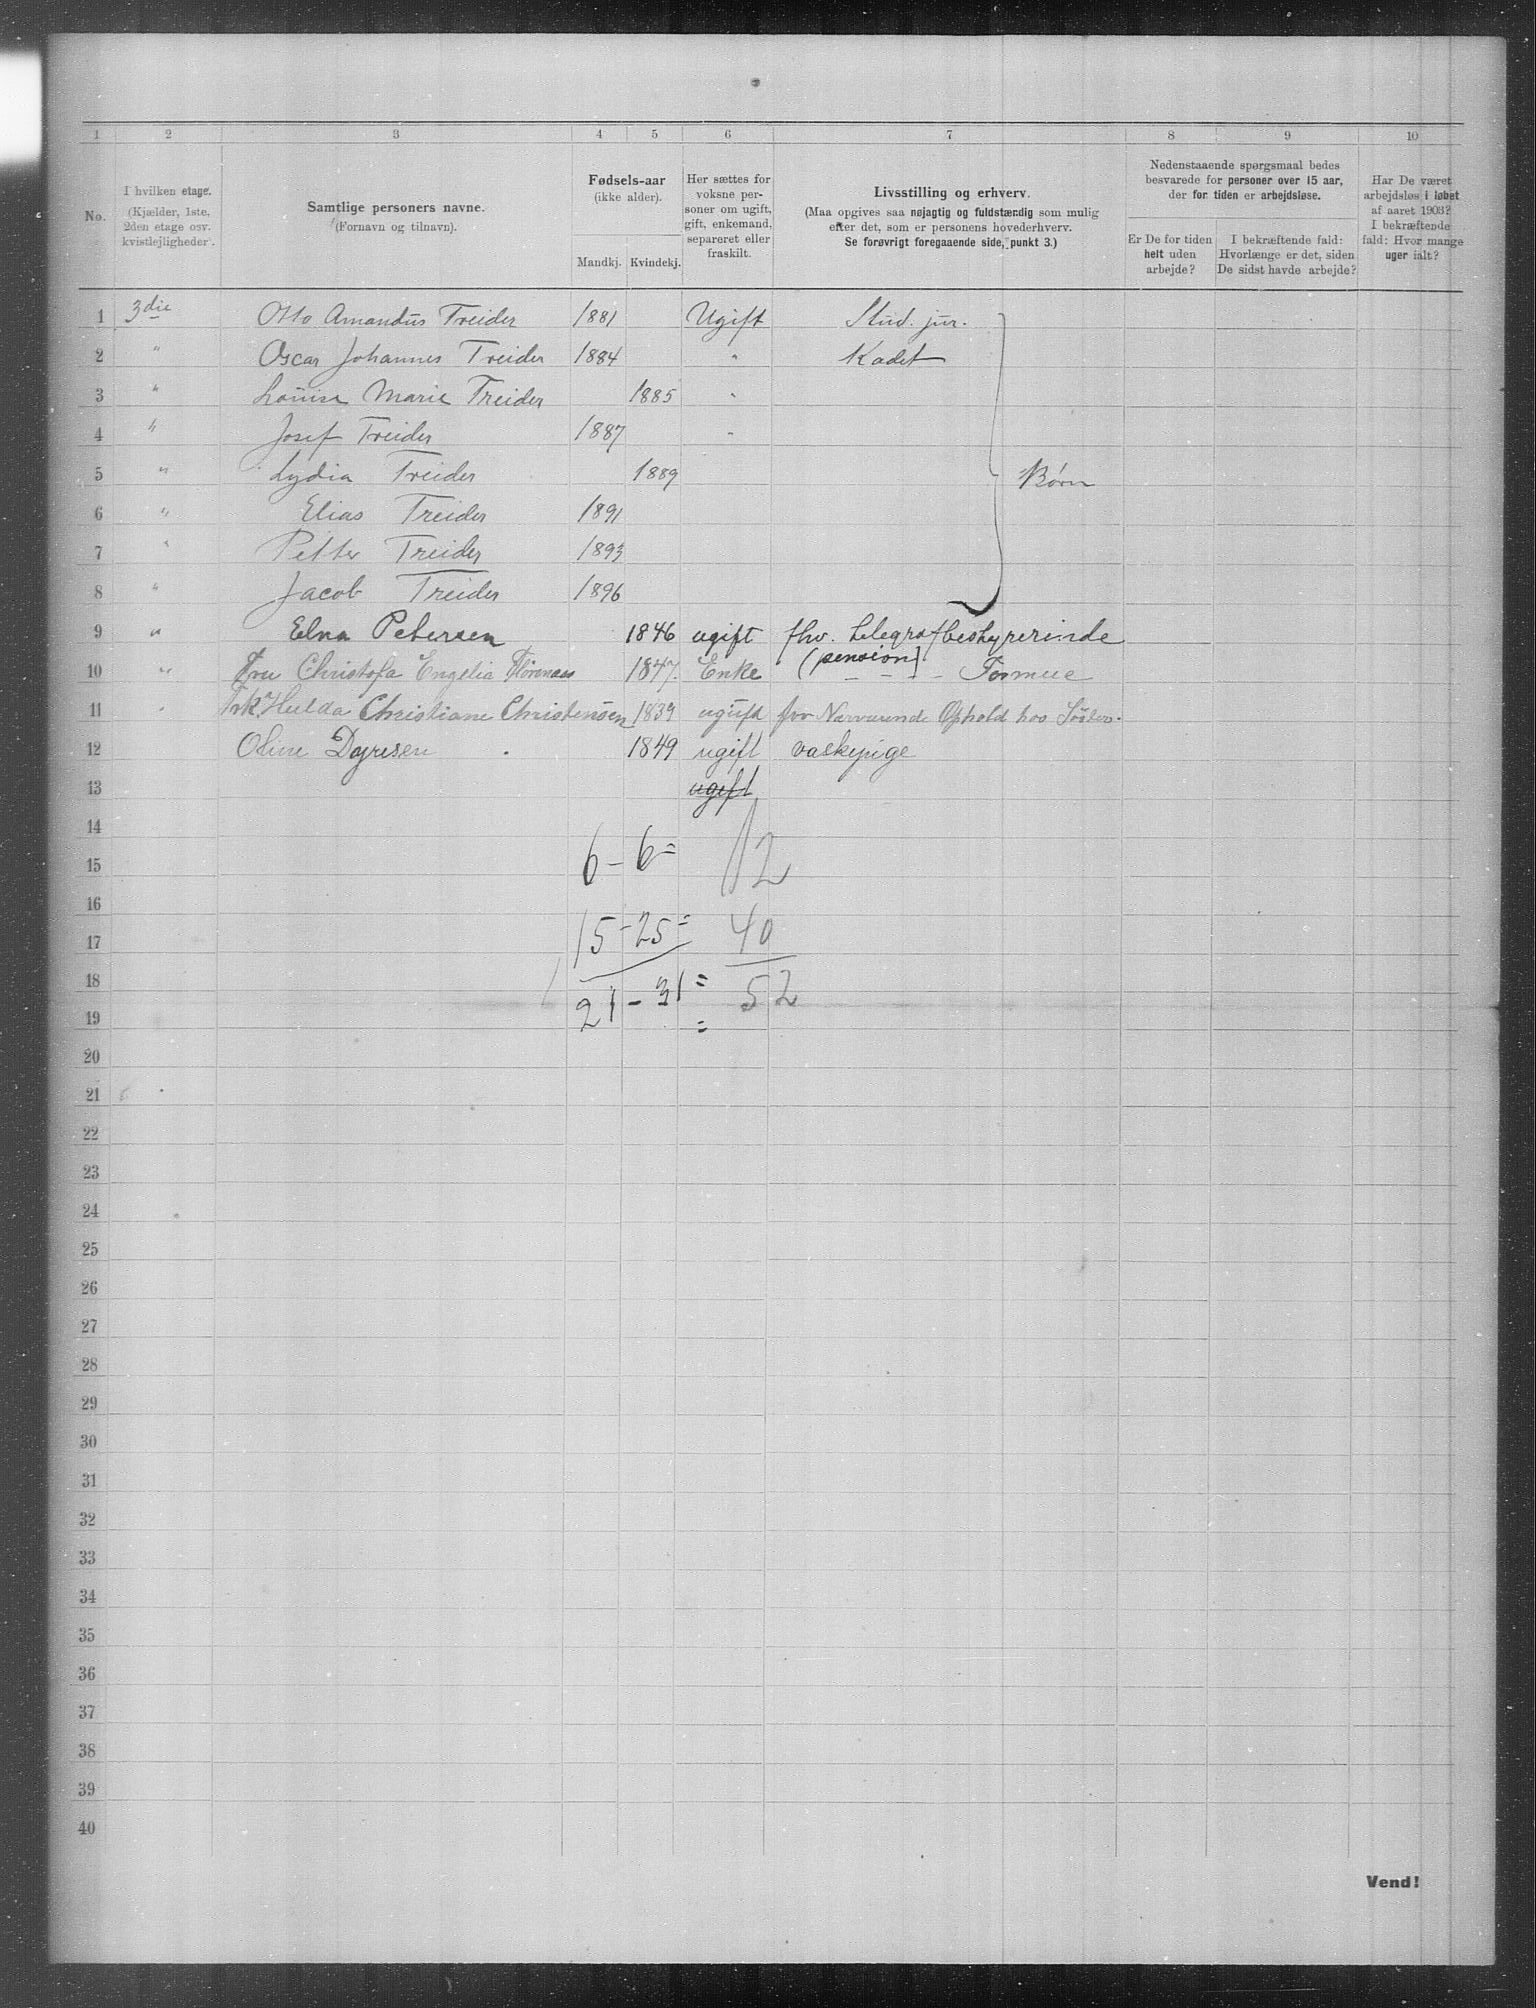 1 2 3 4 5 6 7 8 9 10
No.
I hvilken etage.
(Kjælder, 1ste,
2den etage osv.
kvistlejligheder).
Samtlige personers navne.
(Fornavn og tilnavn).
Fødsels-aar
(ikke alder).
Mandkj. Kvindekj.
Her sættes for
voksne per-
soner om ugift,
gift, enkemand,
separeret eller
fraskilt.
Livsstilling og erhverv.
(Maa opgives saa nøjagtig og fuldstændig som mulig
efter det, som er personens hovederhverv.
Se forøvrigt foregaaende side, punkt 3.)
Nedenstaaende spørgsmaal bedes
besvarede for personer over 15 aar,
der for tiden er arbejdsløse.
Er De for tiden
helt uden
arbejde?
I bekræftende fald:
Hvorlænge er det, siden
De sidst havde arbejde?
Har De været
arbejdsløs i løbet
af aaret 1903?
I bekræftende
fald: Hvor mange
uger ialt?
1 3die Otto Amandus Treider 1881 Ugift Stud. jur.
2 " Oscar Johannes Treider 1884 " Kadet
3 " Louise Marie Treider 1885 "
4 " Josef Treider 1887 "
5 " Lydia Treider 1889 Børn
6 " Elias Treider 1891
7 " Petter Treider 1893
8 " Jacob Treider 1896
9 " Elna Petersen 1846 ugift fhv. telegrafbestyrerinde
(pension)
10 " Fru Christofa Engelia 1847. Enke - - - - Formue
11 " Frk. Hulda Christiane Christensen 1839 ugift for Nærværende Ophold hos Søster.
12 Oline Dyresen 1849 ugift vaskepige
13 ugift
14
15 6 - 6 = 12
16
17 15 - 25 = 40
18
19 21 - 31 = 52
20
21
22
23
24
25
26
27
28
29
30
31
32
33
34
35
36
37
38
39
40
Vend!